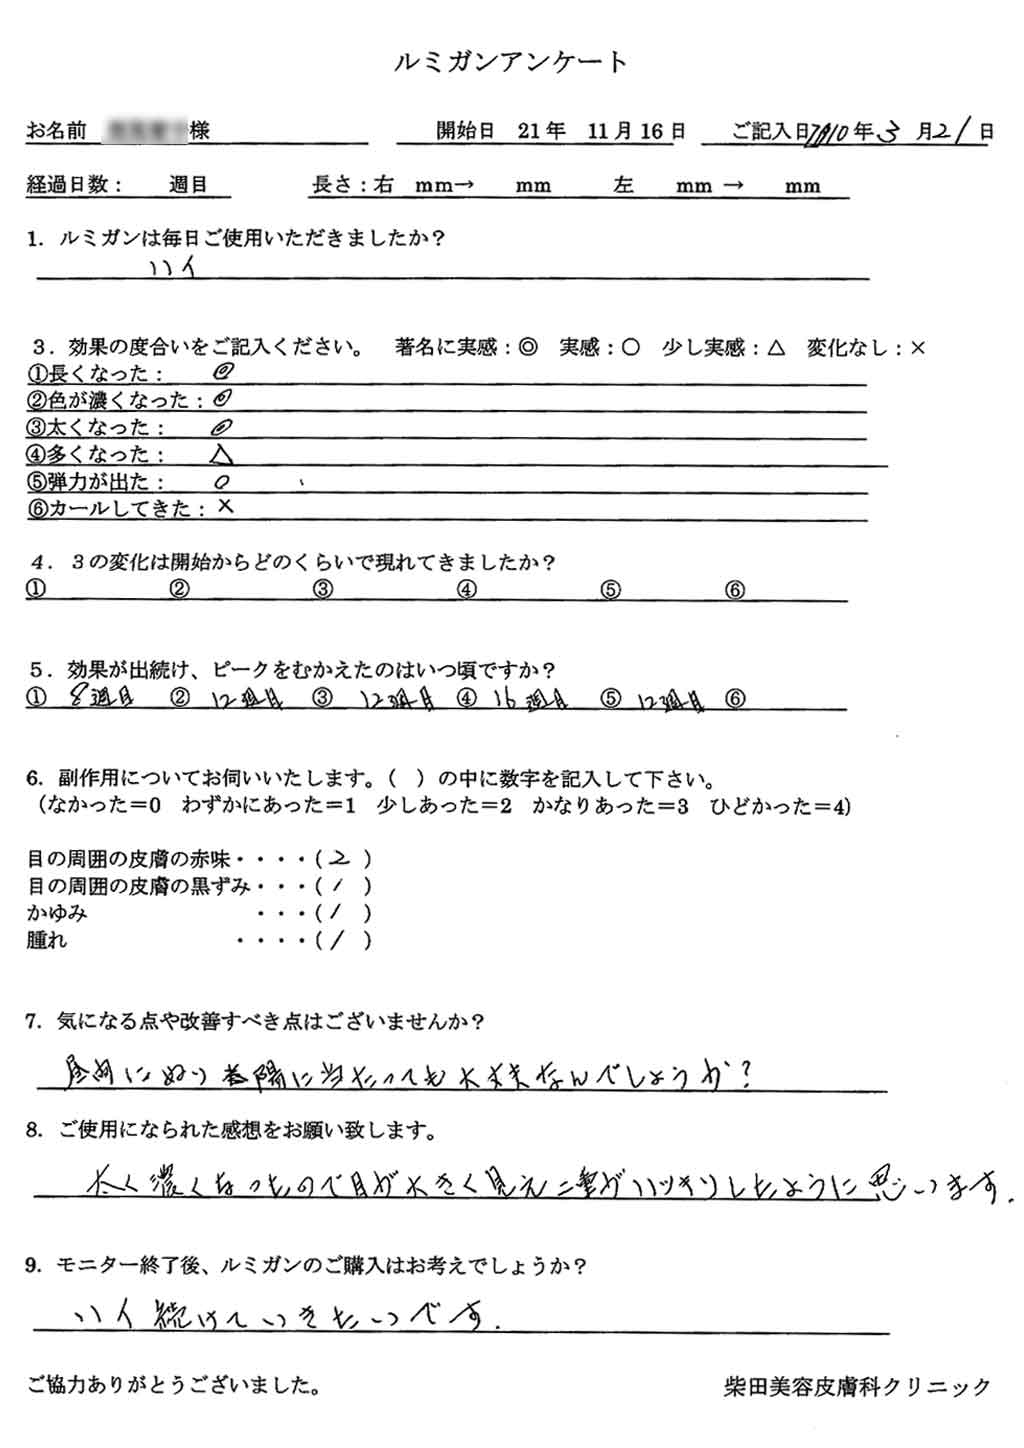 ルミガンアンケート
お名前 様 開始日 21年 11月16日 ご記入日 2010年3月21日
経過日数: 週目 長さ:右 mm→ mm 左 mm → mm
1. ルミガンは毎日ご使用いただきましたか?
ハイ
3. 効果の度合いをご記入ください。 著名に実感:◎ 実感:○ 少し実感:△ 変化なし:×
①長くなった: ◎
②色が濃くなった: ◎
③太くなった: ◎
④多くなった: △
⑤弾力が出た: ○
⑥カールしてきた: ×
4. 3の変化は開始からどのくらいで現れてきましたか?
① ② ③ ④ ⑤ ⑥
5. 効果が出続け、ピークをむかえたのはいつ頃ですか?
① 8週目 ② 12週目 ③ 12週目 ④ 16週目 ⑤ 12週目 ⑥
6. 副作用についてお伺いいたします。( )の中に数字を記入して下さい。
(なかった=0 わずかにあった=1 少しあった=2 かなりあった=3 ひどかった=4)
目の周囲の皮膚の赤味・・・・( 2 )
目の周囲の皮膚の黒ずみ・・・( 1 )
かゆみ ・・・( 1 )
腫れ ・・・・( 1 )
7. 気になる点や改善すべき点はございませんか?
昼間にぬり 太陽に当たっても大丈夫なんでしょうか?
8. ご使用になられた感想をお願い致します。
太く濃くなったので目が大きく見え二重がハッキリしたように思います.
9. モニター終了後、ルミガンのご購入はお考えでしょうか?
ハイ 続けていきたいです.
ご協力ありがとうございました。 柴田美容皮膚科クリニック